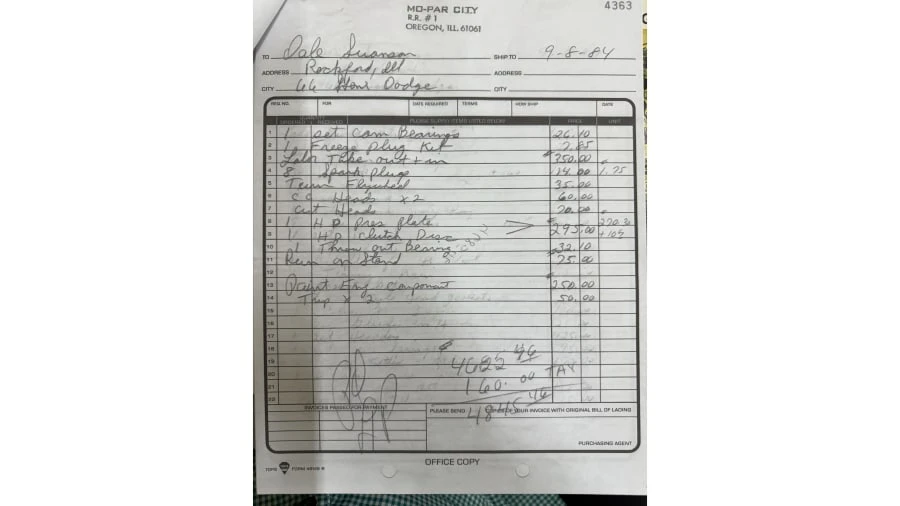 4363
MO-PAR CITY
R.R. #1
OREGON, ILL. 61061
TO Dale Swanson SHIP TO 9-8-84
ADDRESS Rockford, Ill ADDRESS
CITY 66 Hemi Dodge CITY
REQ. NO. FOR DATE REQUIRED TERMS HOW SHIP DATE
QUANTITY
ORDERED RECEIVED PLEASE SUPPLY ITEMS LISTED BELOW PRICE UNIT
1 1 set Cam Bearings 26.10
2 1 Freeze plug Kit 2.85
3 Labor Take out + in 350.00
4 8 Spark plugs 14.00 1.75
5 Turn Flywheel 35.00
6 cc Heads x 2 60.00
7 cut Heads 70.00
8 1 H.P. pres plate
9 1 H.P. Clutch Disc 295.00
10 1 Throw out Bearing 32.10
11 Run on Stand 75.00
12
13 Paint Eng Component 250.00
14 Trip x 2 50.00
15
16
17
18
19
20 160.00 TAX
21
22
INVOICES PASSED FOR PAYMENT
PLEASE SEND COPIES OF YOUR INVOICE WITH ORIGINAL BILL OF LADING
PURCHASING AGENT
OFFICE COPY